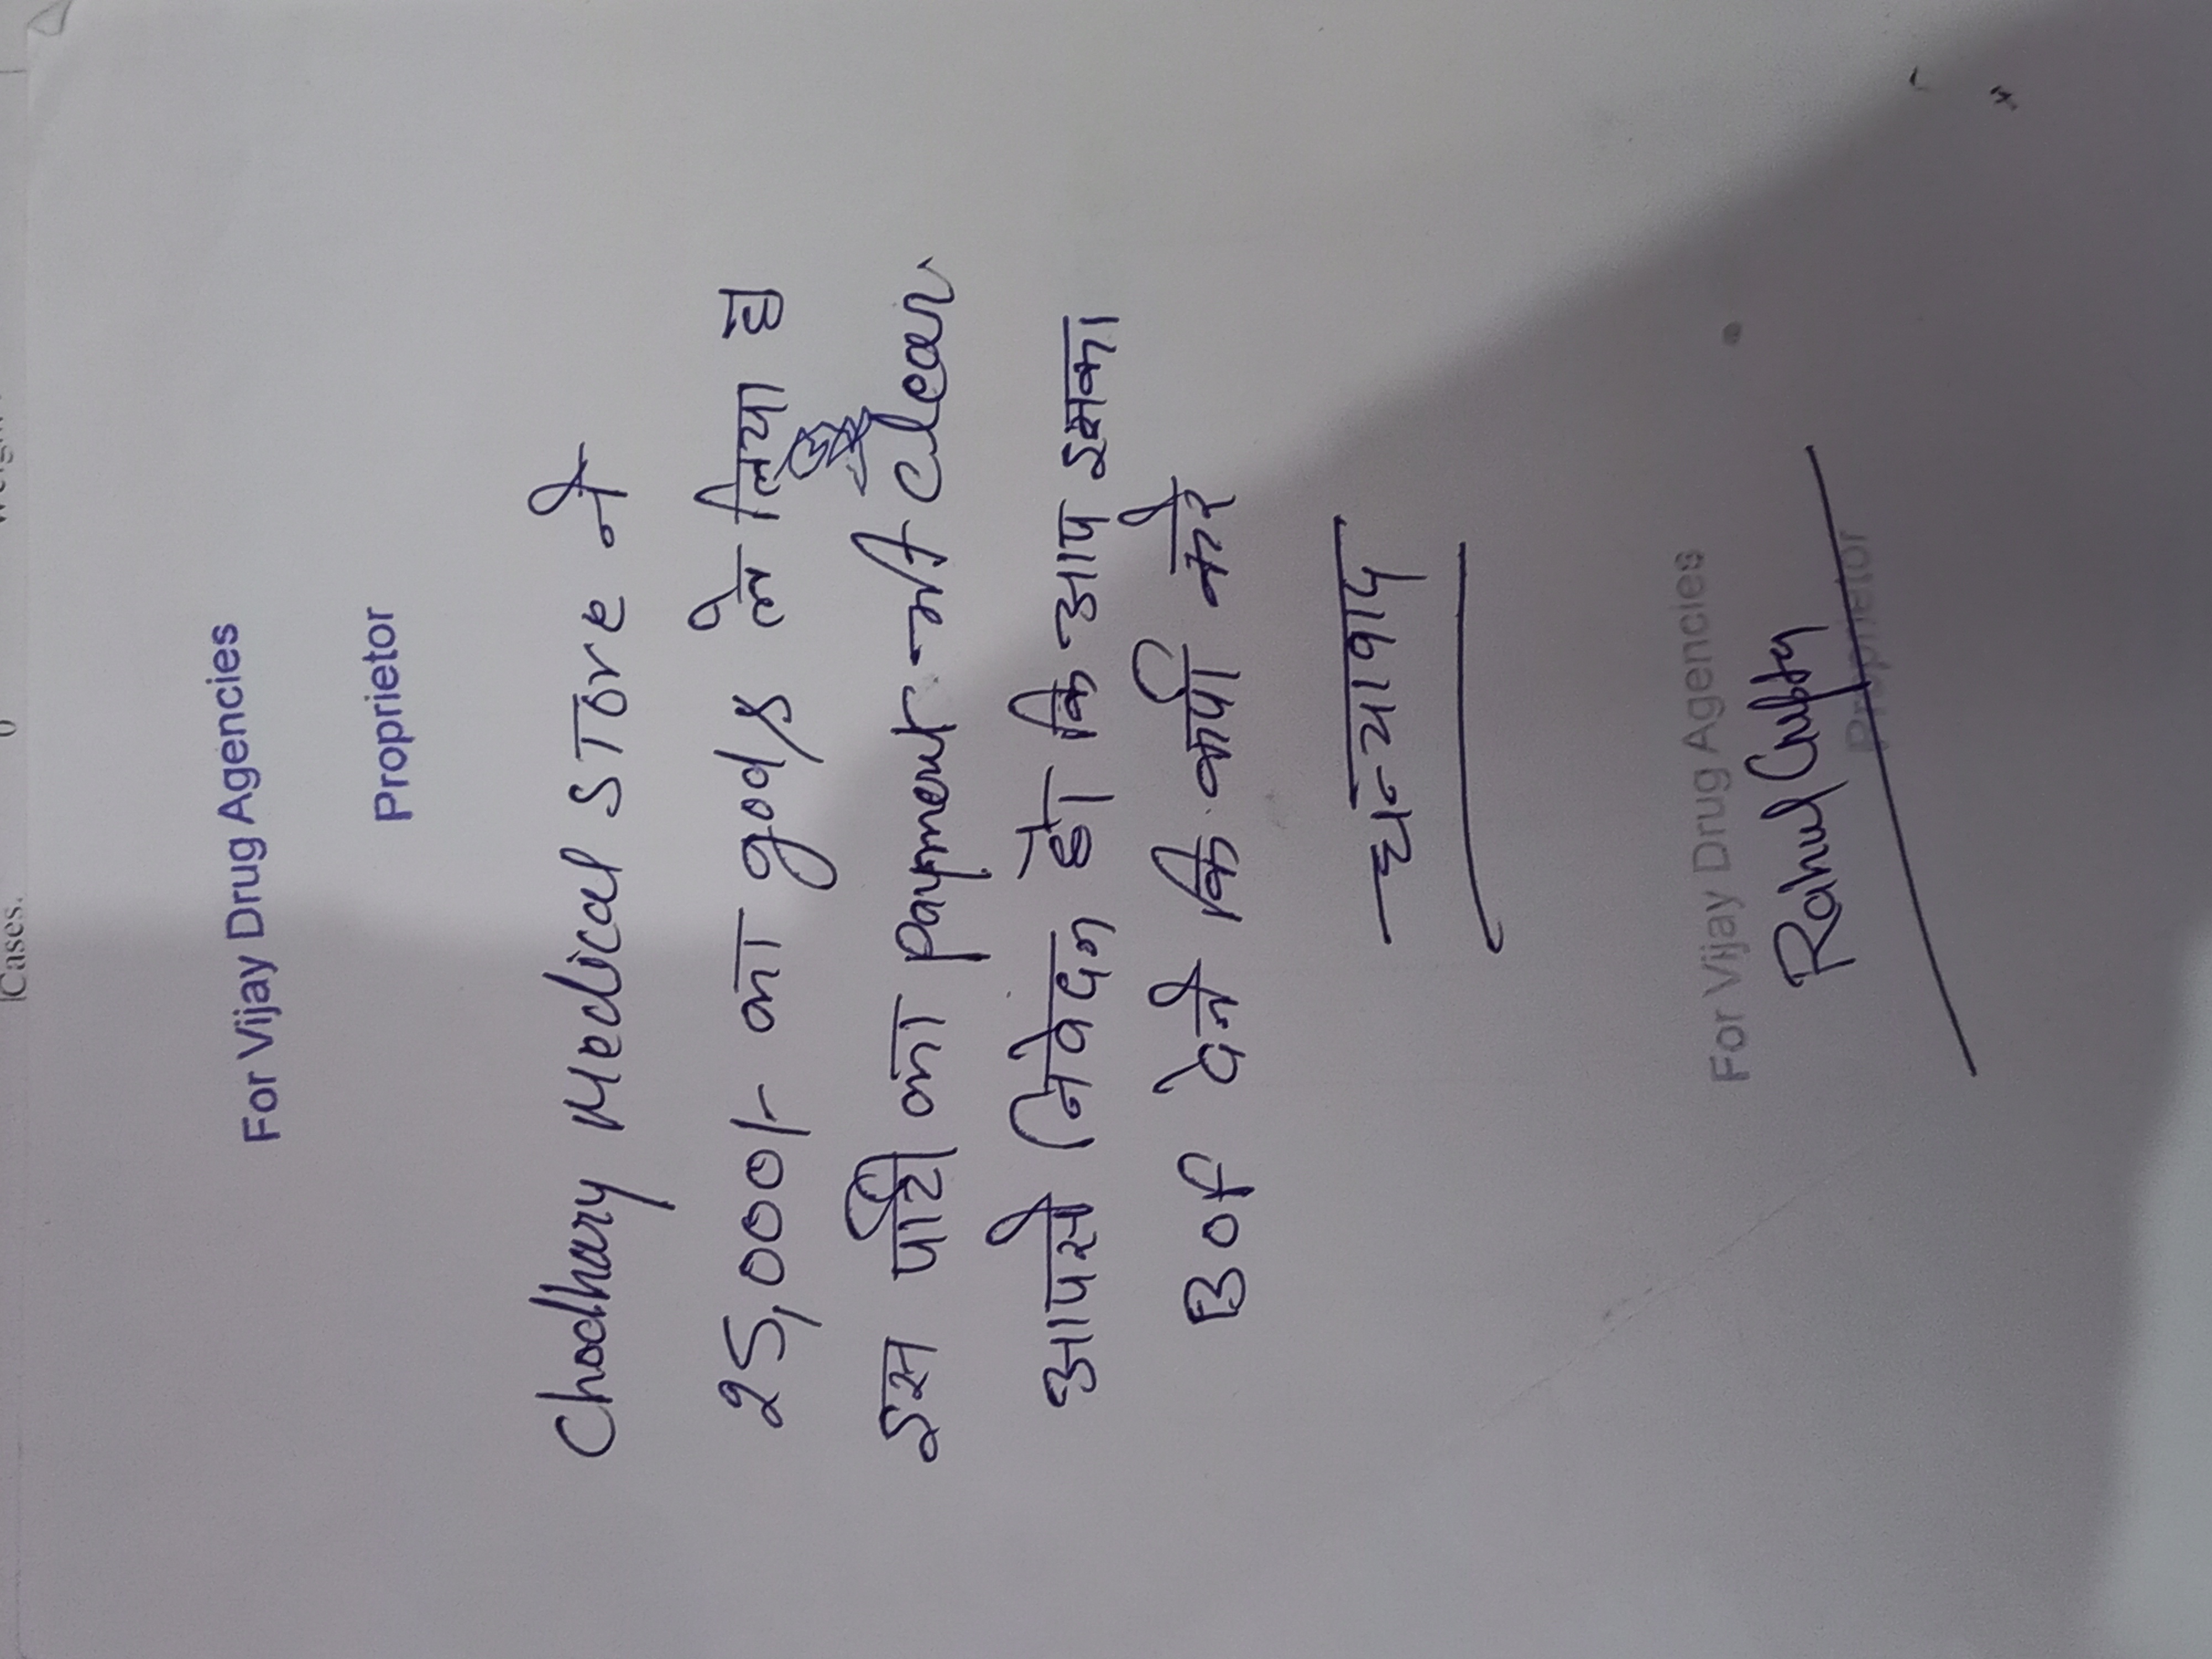 Cases.
For Vijay Drug Agencies
Proprietor
Chodhary Medical STore ने
25,000/- का god/s ले लिया है
इस पार्टी का Payment न/A Clear
आपसे निवेदन है कि आप इसका
BOP देने कि कर्पा करे
धन्यावाद
For Vijay Drug Agencies
Rahul Gupta
Proprietor